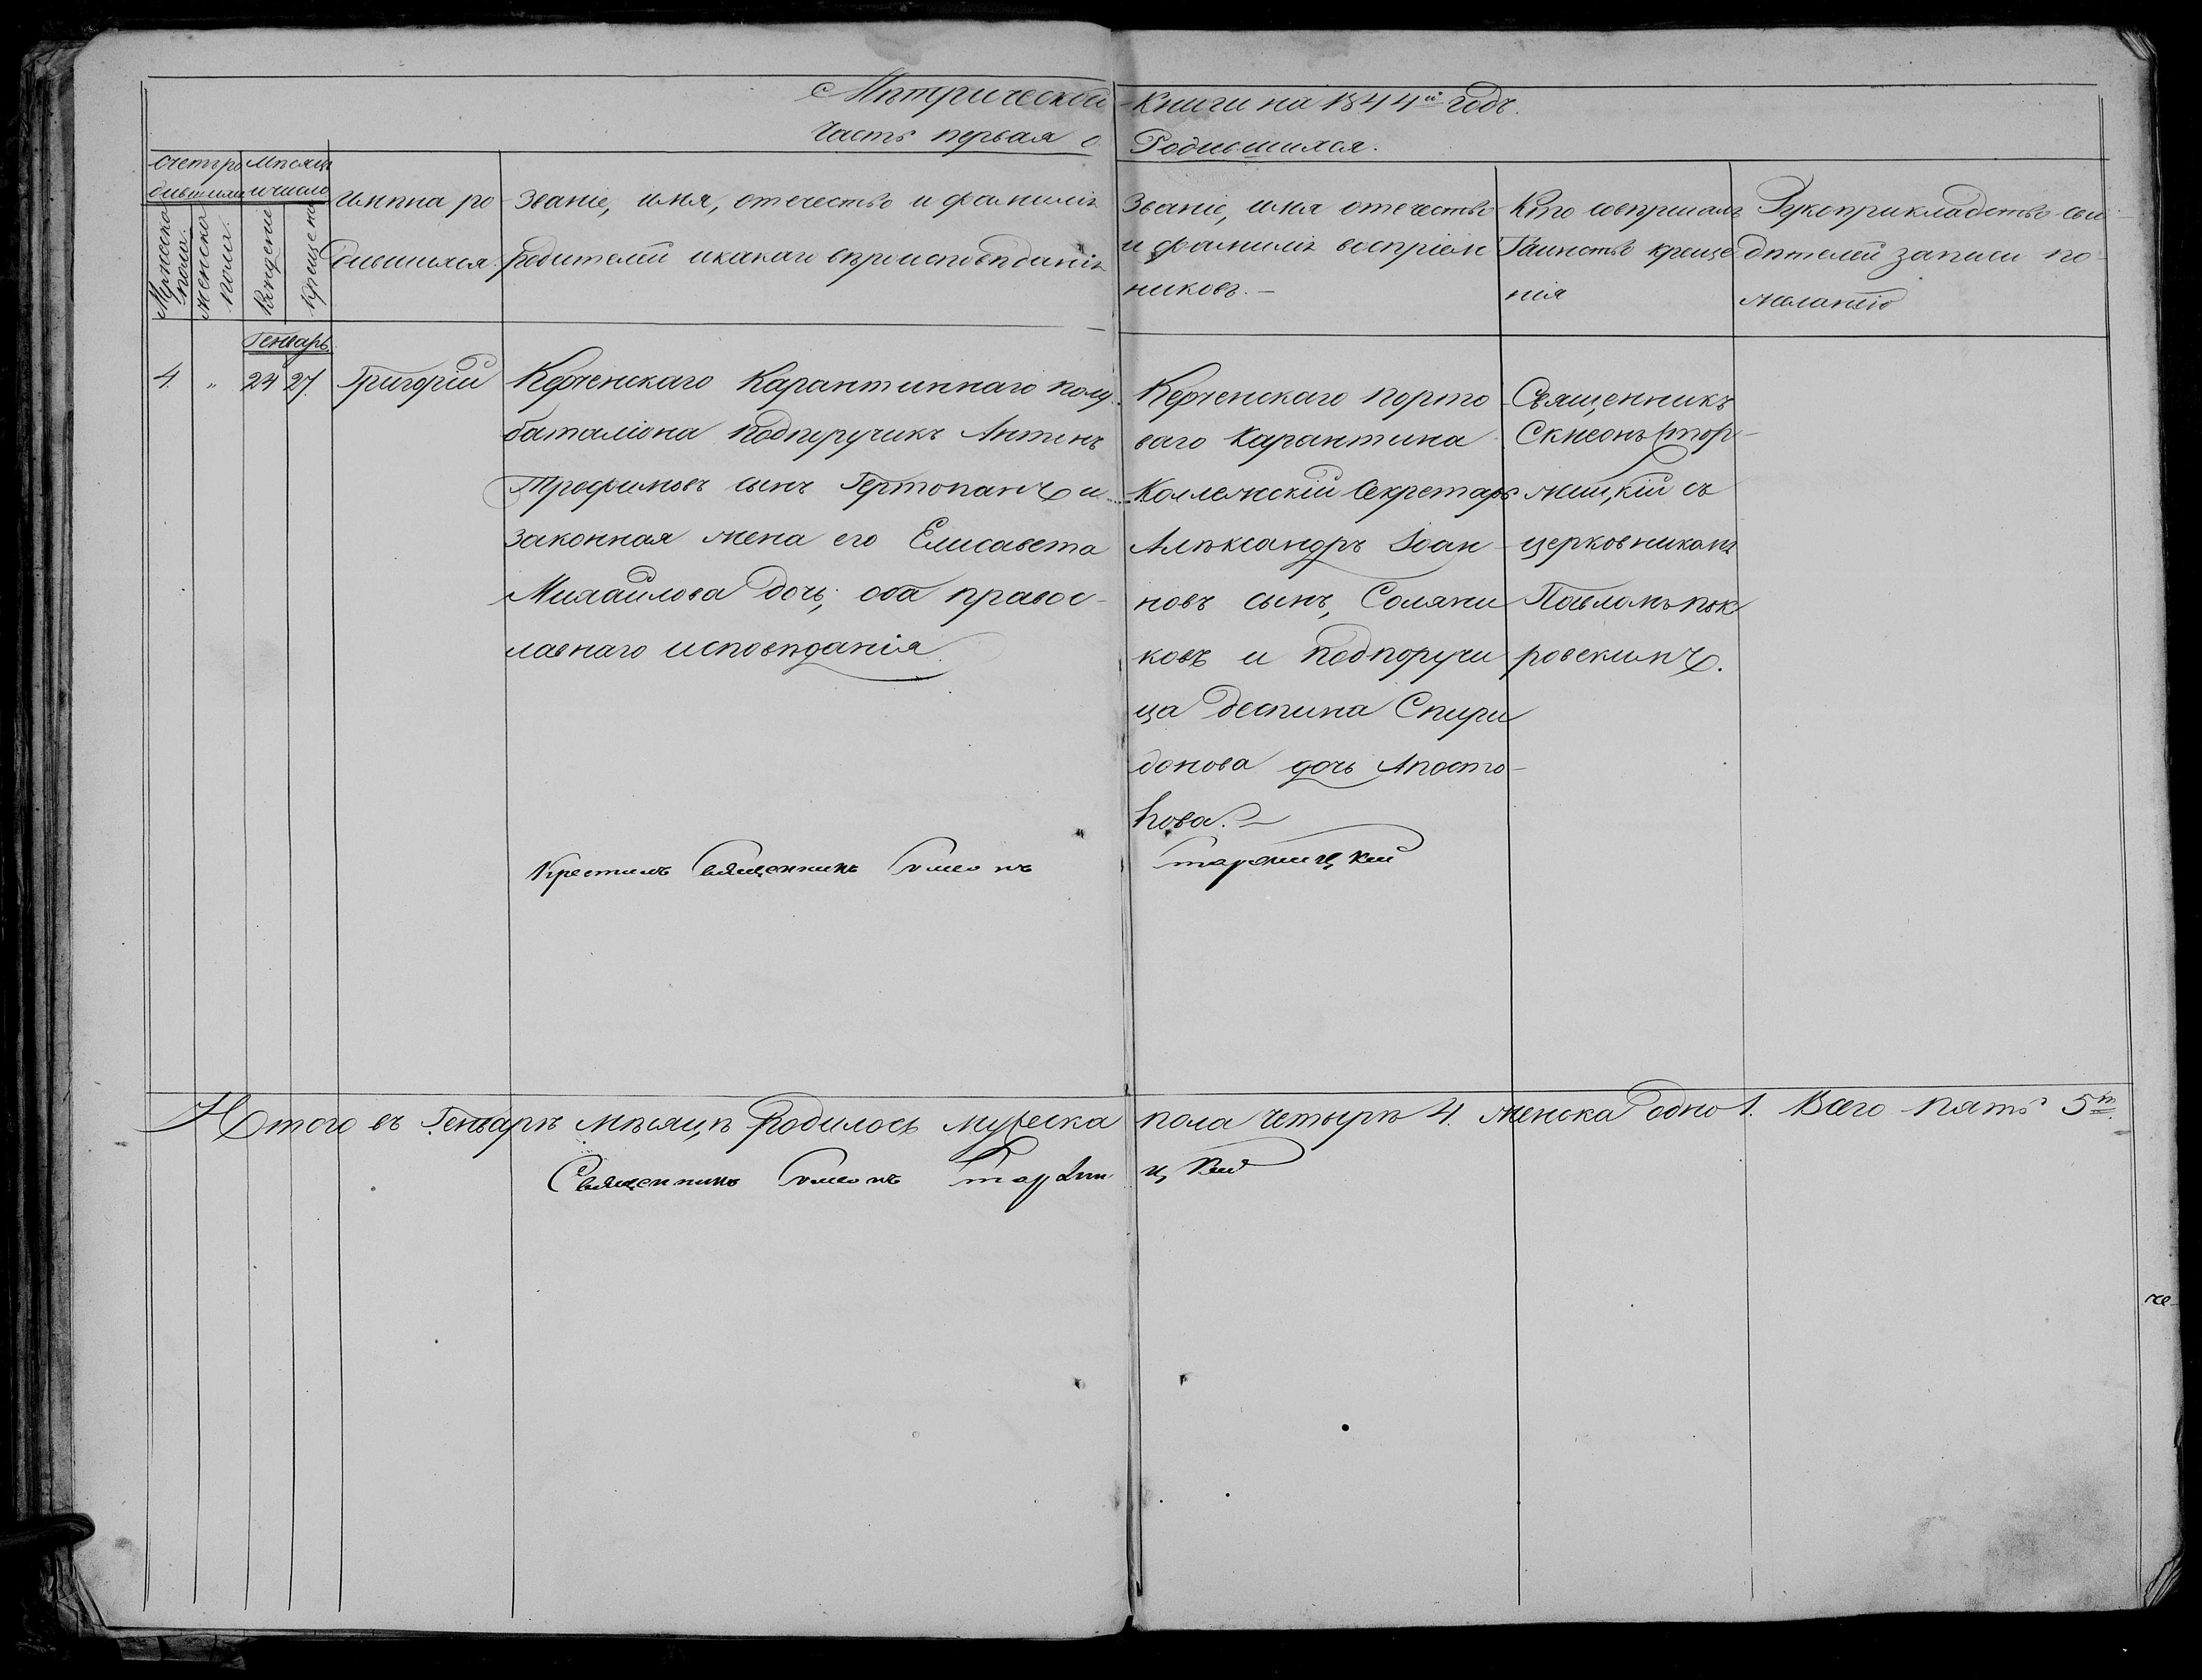 Мѣтрической Книги на 1844й годъ.
Часть первая о Родившихся.
Счетъ родившихся
Мѣсяцъ и число
Мужеска пола.
Женска пола.
Рожденіе
Крещеніе
Имѣна родившихся.
Званіе, имя, отечество и фамилія
родителей и какаго вѣроисповѣданія
Званіе, имя отечество
и фамилія воспріем
никовъ. —
Кто совершалъ
Таинство креще
нія
Рукоприкладство сви
дѣтелей записи по
желанію
Генварь
4. „ 24 27. Григорій
Керченскаго Карантиннаго полу
баталіона Подпоручикъ Антонъ
Трофимовъ сынъ и
законная жена его Елисавета
Михайлова дочь; оба правос-
лавнаго исповѣданія.
Керченскаго порто
ваго Карантина
Коллежскій Секретарь
Алѣксандръ Іоан
новъ сынъ, Соляни
ковъ и Подпоручи
ца Деспина Спири
донова дочь Апосто-
лова. —
Священникъ
Сімеонъ Стар-
жицкій съ
церковникомъ
Павломъ Пок
ровскимъ.
Крестилъ Священникъ Симеонъ Старжицкій
Итого въ Генварѣ мѣсяцѣ родилось мужеска пола четырѣ 4. женска одно 1. Всего пять 5ть.
Священникъ Симеонъ Старжицкій